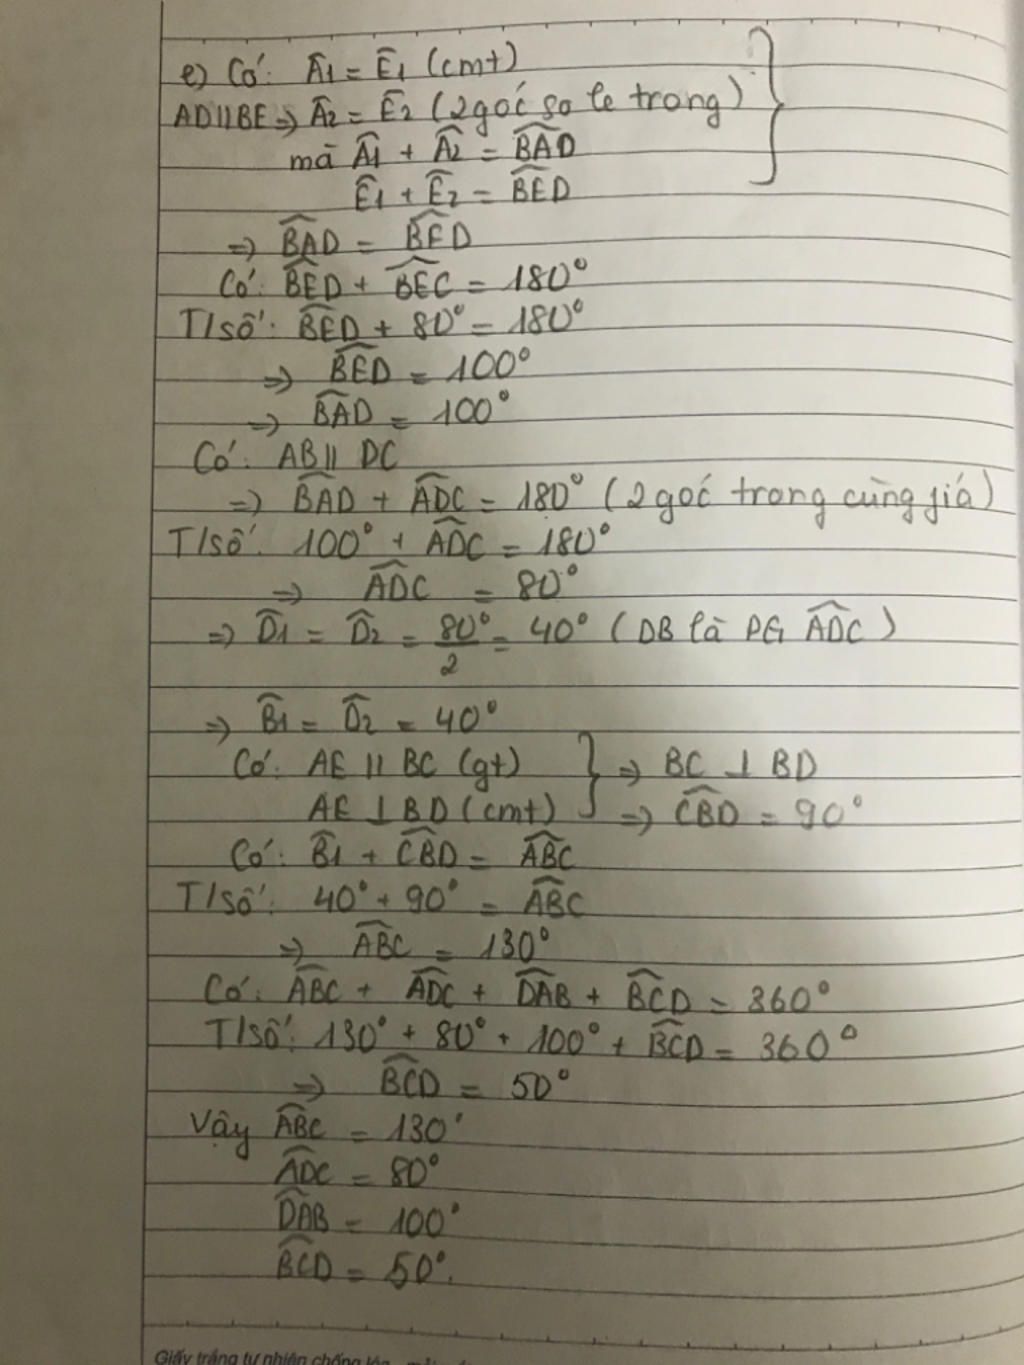 e) Có: Â1 = Ê1 (cmt)
AD // BE => Â2 = Ê2 (2 góc so le trong)
mà Â1 + Â2 = BAD
Ê1 + Ê2 = BED
=> BAD = BED
Có: BED + BEC = 180°
T/số: BED + 80° = 180°
=> BED = 100°
=> BAD = 100°
Có: AB // DC
=> BAD + ADC = 180° (2 góc trong cùng fiá)
T/số: 100° + ADC = 180°
=> ADC = 80°
=> D̂1 = D̂2 = 80°/2 = 40° (DB là PG ADC)
=> B̂1 = D̂2 = 40°
Có: AE // BC (gt) } => BC ⊥ BD
AE ⊥ BD (cmt) => CBD = 90°
Có: B̂1 + CBD = ABC
T/số: 40° + 90° = ABC
=> ABC = 130°
Có: ABC + ADC + DAB + BCD = 360°
T/số: 130° + 80° + 100° + BCD = 360°
=> BCD = 50°
Vậy ABC = 130°
ADC = 80°
DAB = 100°
BCD = 50°.
Giấy trắng tự nhiên chống